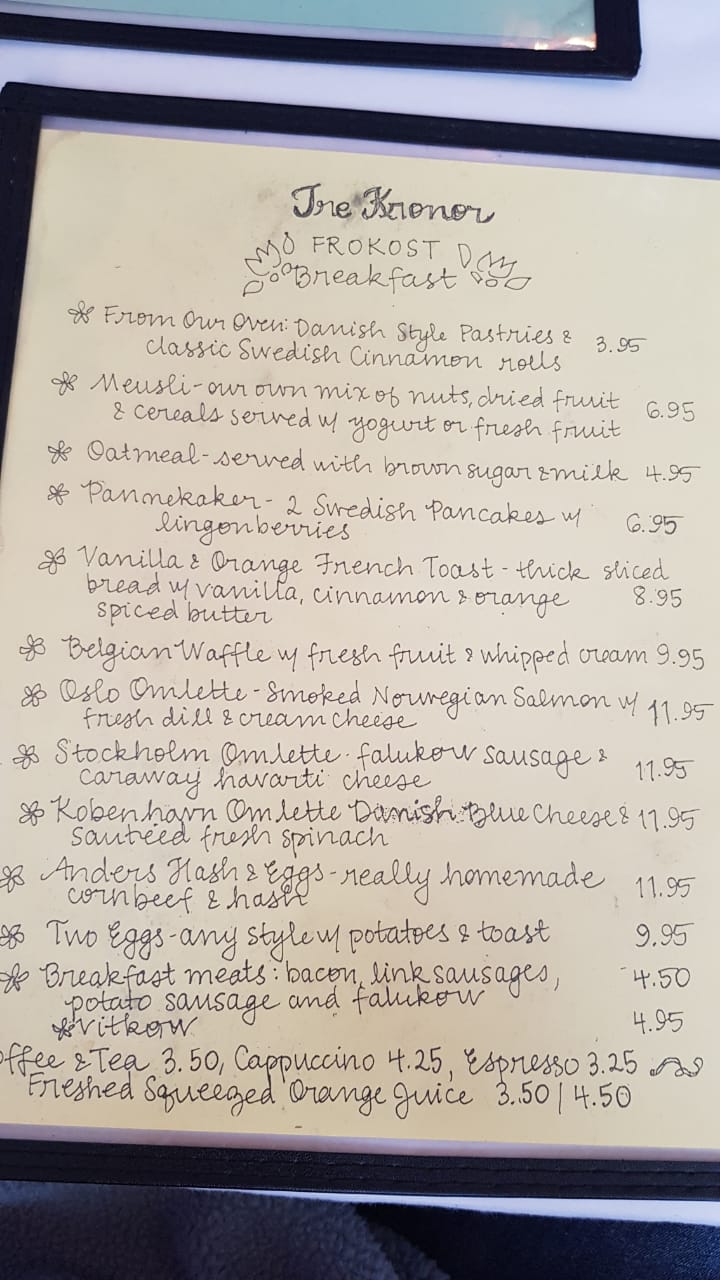 Tre Kronor
FROKOST
Breakfast
From Our Oven: Danish Style Pastries &
classic Swedish Cinnamon rolls 3.95
Meusli-our own mix of nuts, dried fruit
& cereals served w/ yogurt or fresh fruit 6.95
Oatmeal-served with brown sugar & milk 4.95
Pannekaker- 2 Swedish Pancakes w/
lingonberries 6.95
Vanilla & Orange French Toast - thick sliced
bread w/ vanilla, cinnamon & orange 8.95
spiced butter
Belgian Waffle w/ fresh fruit & whipped cream 9.95
Oslo Omlette-Smoked Norwegian Salmon w/
fresh dill & cream cheese 11.95
Stockholm Omlette-falukorv sausage &
caraway havarti cheese 11.95
Kobenhavn Omlette Danish Blue Cheese & 11.95
sauteed fresh spinach
Anders Hash & Eggs-really homemade
cornbeef & hash 11.95
Two Eggs-any style w/ potatoes & toast 9.95
Breakfast meats: bacon, link sausages, 4.50
potato sausage and falukorv
vitkorv 4.95
offee & Tea 3.50, Cappuccino 4.25, Espresso 3.25
Freshed Squeezed Orange Juice 3.50 | 4.50